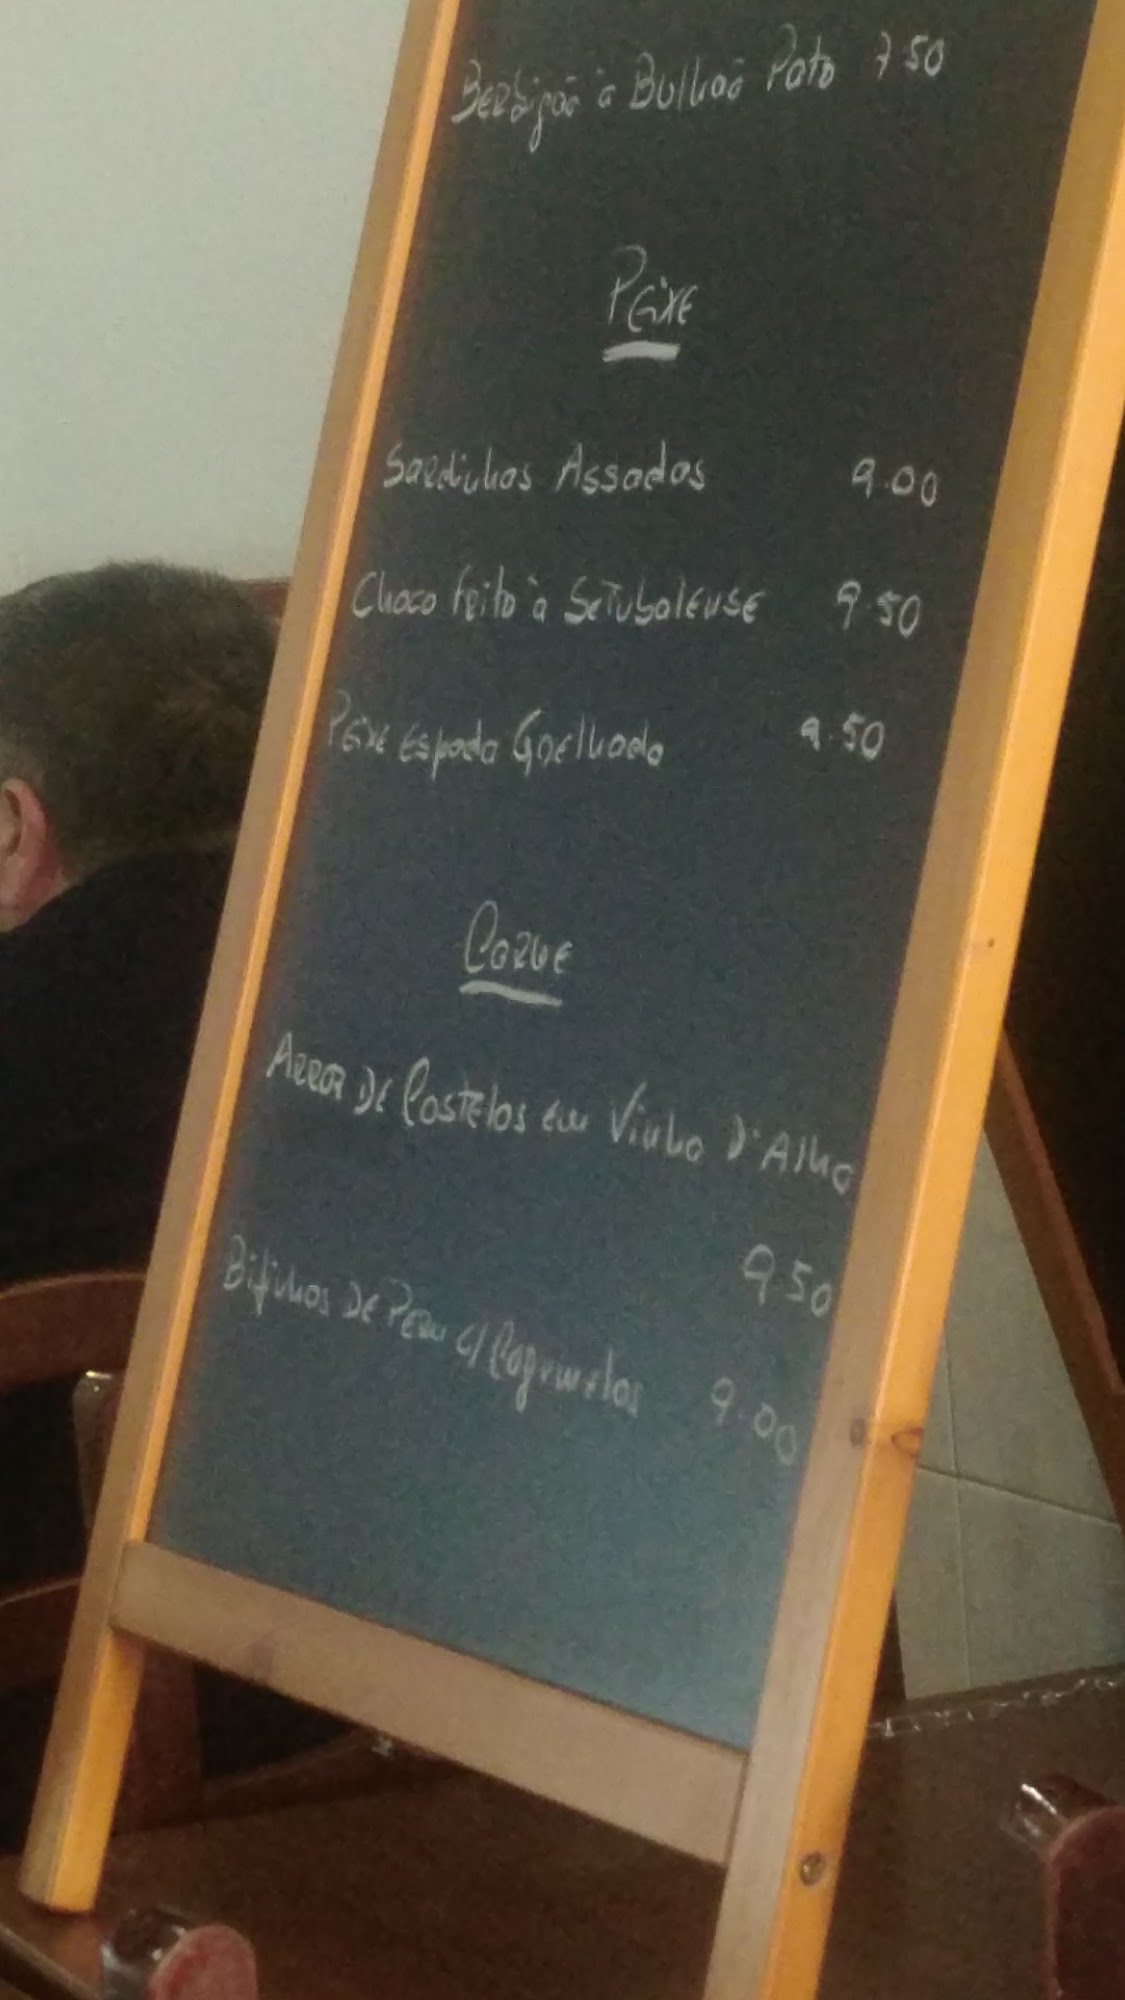 Berbigão à Bulhão Pato 7 50
Peixe
Sardinhas Assadas 9.00
Choco Frito à Setubalense 9.50
Peixe Espada Grelhado 9.50
Carne
Arroz de Costelas em Vinha D'Alho
9.50
Bifinhos de Peru c/ Cogumelos 9.00